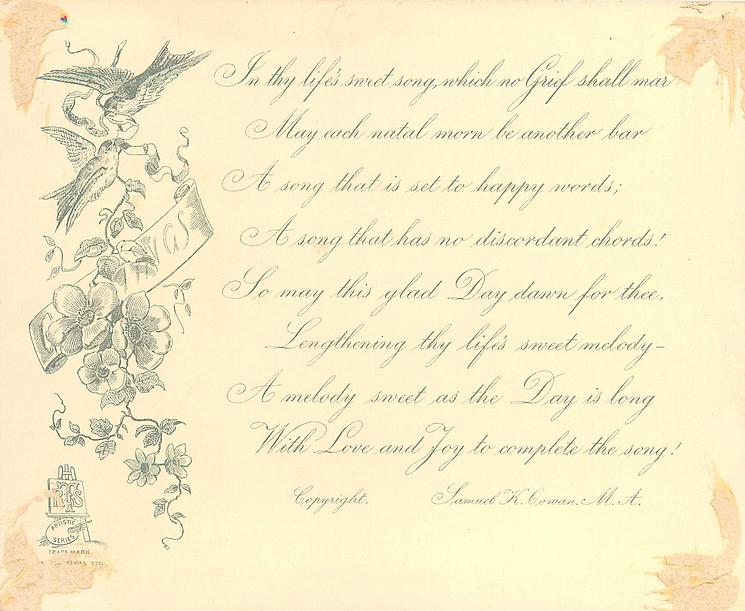 In thy life's sweet song, which no Grief shall mar
May each natal morn be another bar
A song that is set to happy words;
A song that has no discordant chords!
So may this glad Day dawn for thee,
Lengthening thy life's sweet melody—
A melody sweet as the Day is long
With Love and Joy to complete the song!
Copyright. Samuel K. Cowan. M. A.
ARTISTIC
SERIES
TRADE MARK